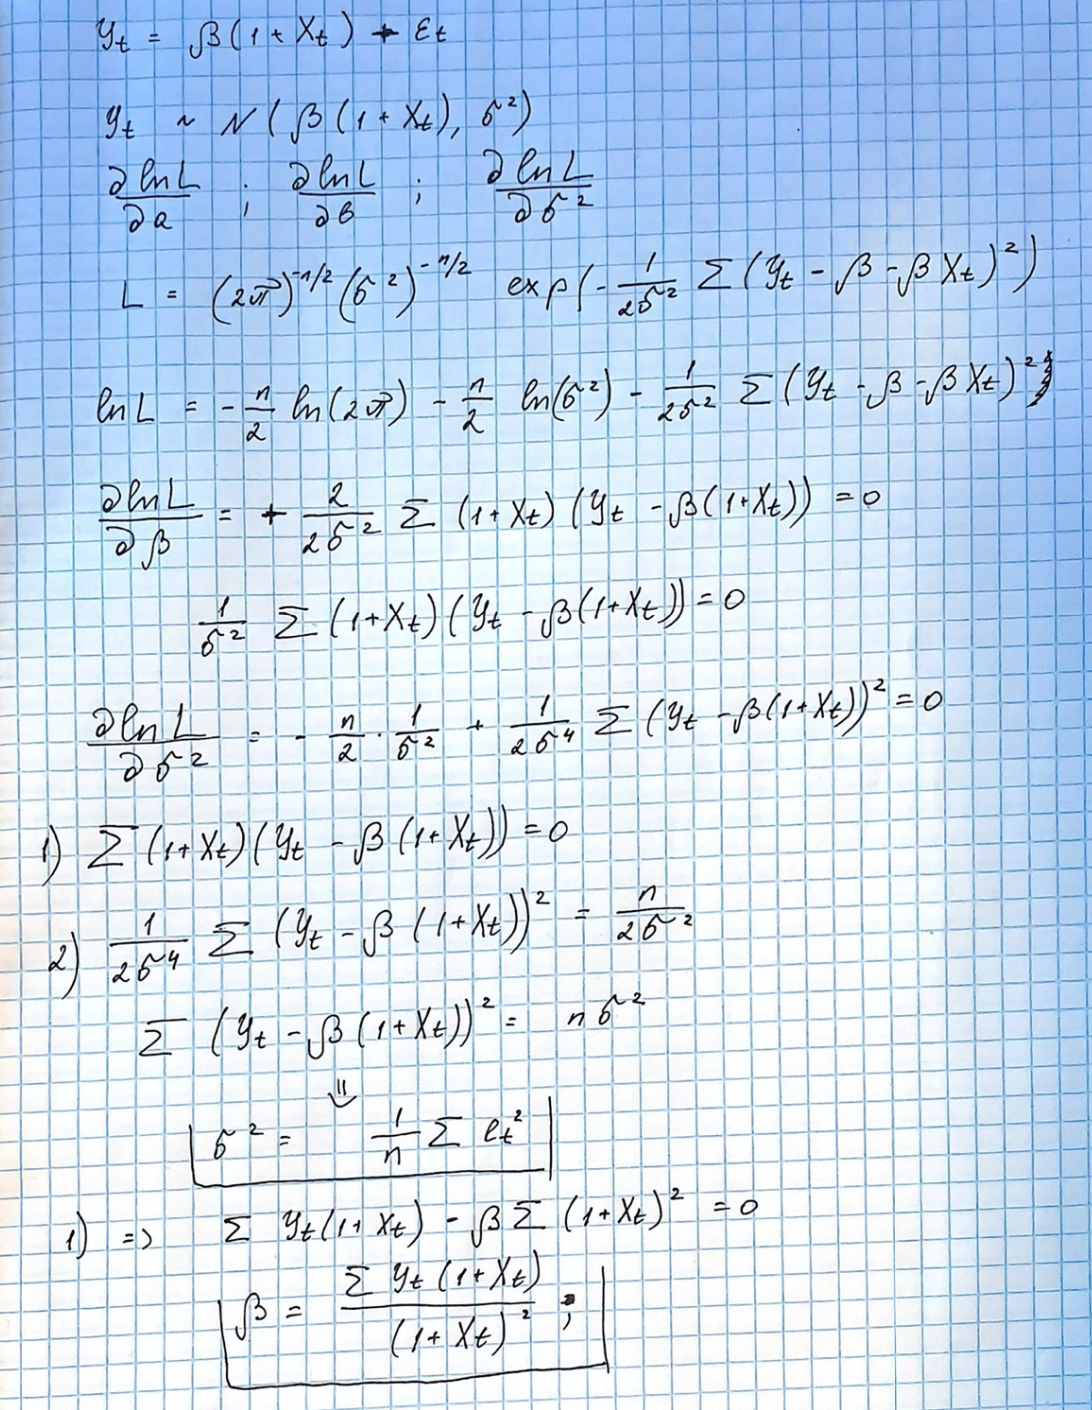 y_t = β(1 + X_t) + ε_t
y_t ~ N(β(1 + X_t), σ²)
∂lnL/∂a ; ∂lnL/∂b ; ∂lnL/∂σ²
L = (2π)^(-n/2) (σ²)^(-n/2) exp(-1/(2σ²) Σ(y_t - β - βX_t)²)
lnL = -n/2 ln(2π) - n/2 ln(σ²) - 1/(2σ²) Σ(y_t - β - βX_t)²
∂lnL/∂β = + 2/(2σ²) Σ (1+X_t)(y_t - β(1+X_t)) = 0
1/σ² Σ (1+X_t)(y_t - β(1+X_t)) = 0
∂lnL/∂σ² = - n/2 · 1/σ² + 1/(2σ⁴) Σ (y_t - β(1+X_t))² = 0
1) Σ (1+X_t)(y_t - β(1+X_t)) = 0
2) 1/(2σ⁴) Σ (y_t - β(1+X_t))² = n/(2σ²)
Σ (y_t - β(1+X_t))² = nσ²
⇓
σ² = 1/n Σ e_t²
1) => Σ y_t(1+X_t) - βΣ(1+X_t)² = 0
β = Σ y_t(1+X_t) / (1+X_t)² ;